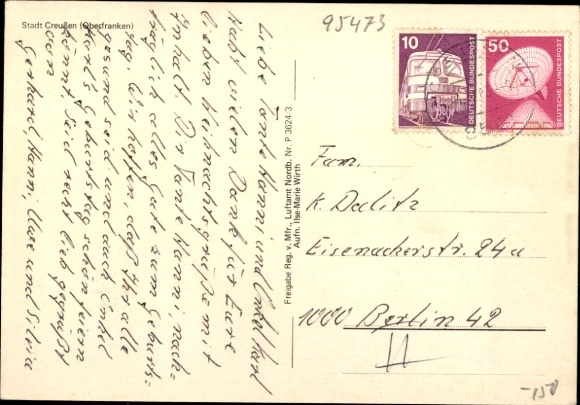 Stadt Creußen (Oberfranken)
95473
10
DEUTSCHE BUNDESPOST
50
DEUTSCHE BUNDESPOST
Liebe Tante Hanni und Onkel Karl
Habt vielen Dank für Eure
lieben Weihnachtsgrüße mit
Inhalt. Dir Tante Hanni, nach-
träglich alles Gute zum Geburts-
tag. Wir hoffen, daß Ihr alle
gesund seid und auch Onkel
Karl's Geburtstag schön feiern
könnt. Seid recht lieb gegrüßt
von
Gerhard, Hanni, und Silvia
Freigabe Reg. v. Mfr., Luftamt Nordb. Nr. P 3624/3
Aufn. Ilse-Marie Wirth
Fam.
K. Dalitz
Eisenacherstr. 24a
1000 Berlin 42
-150